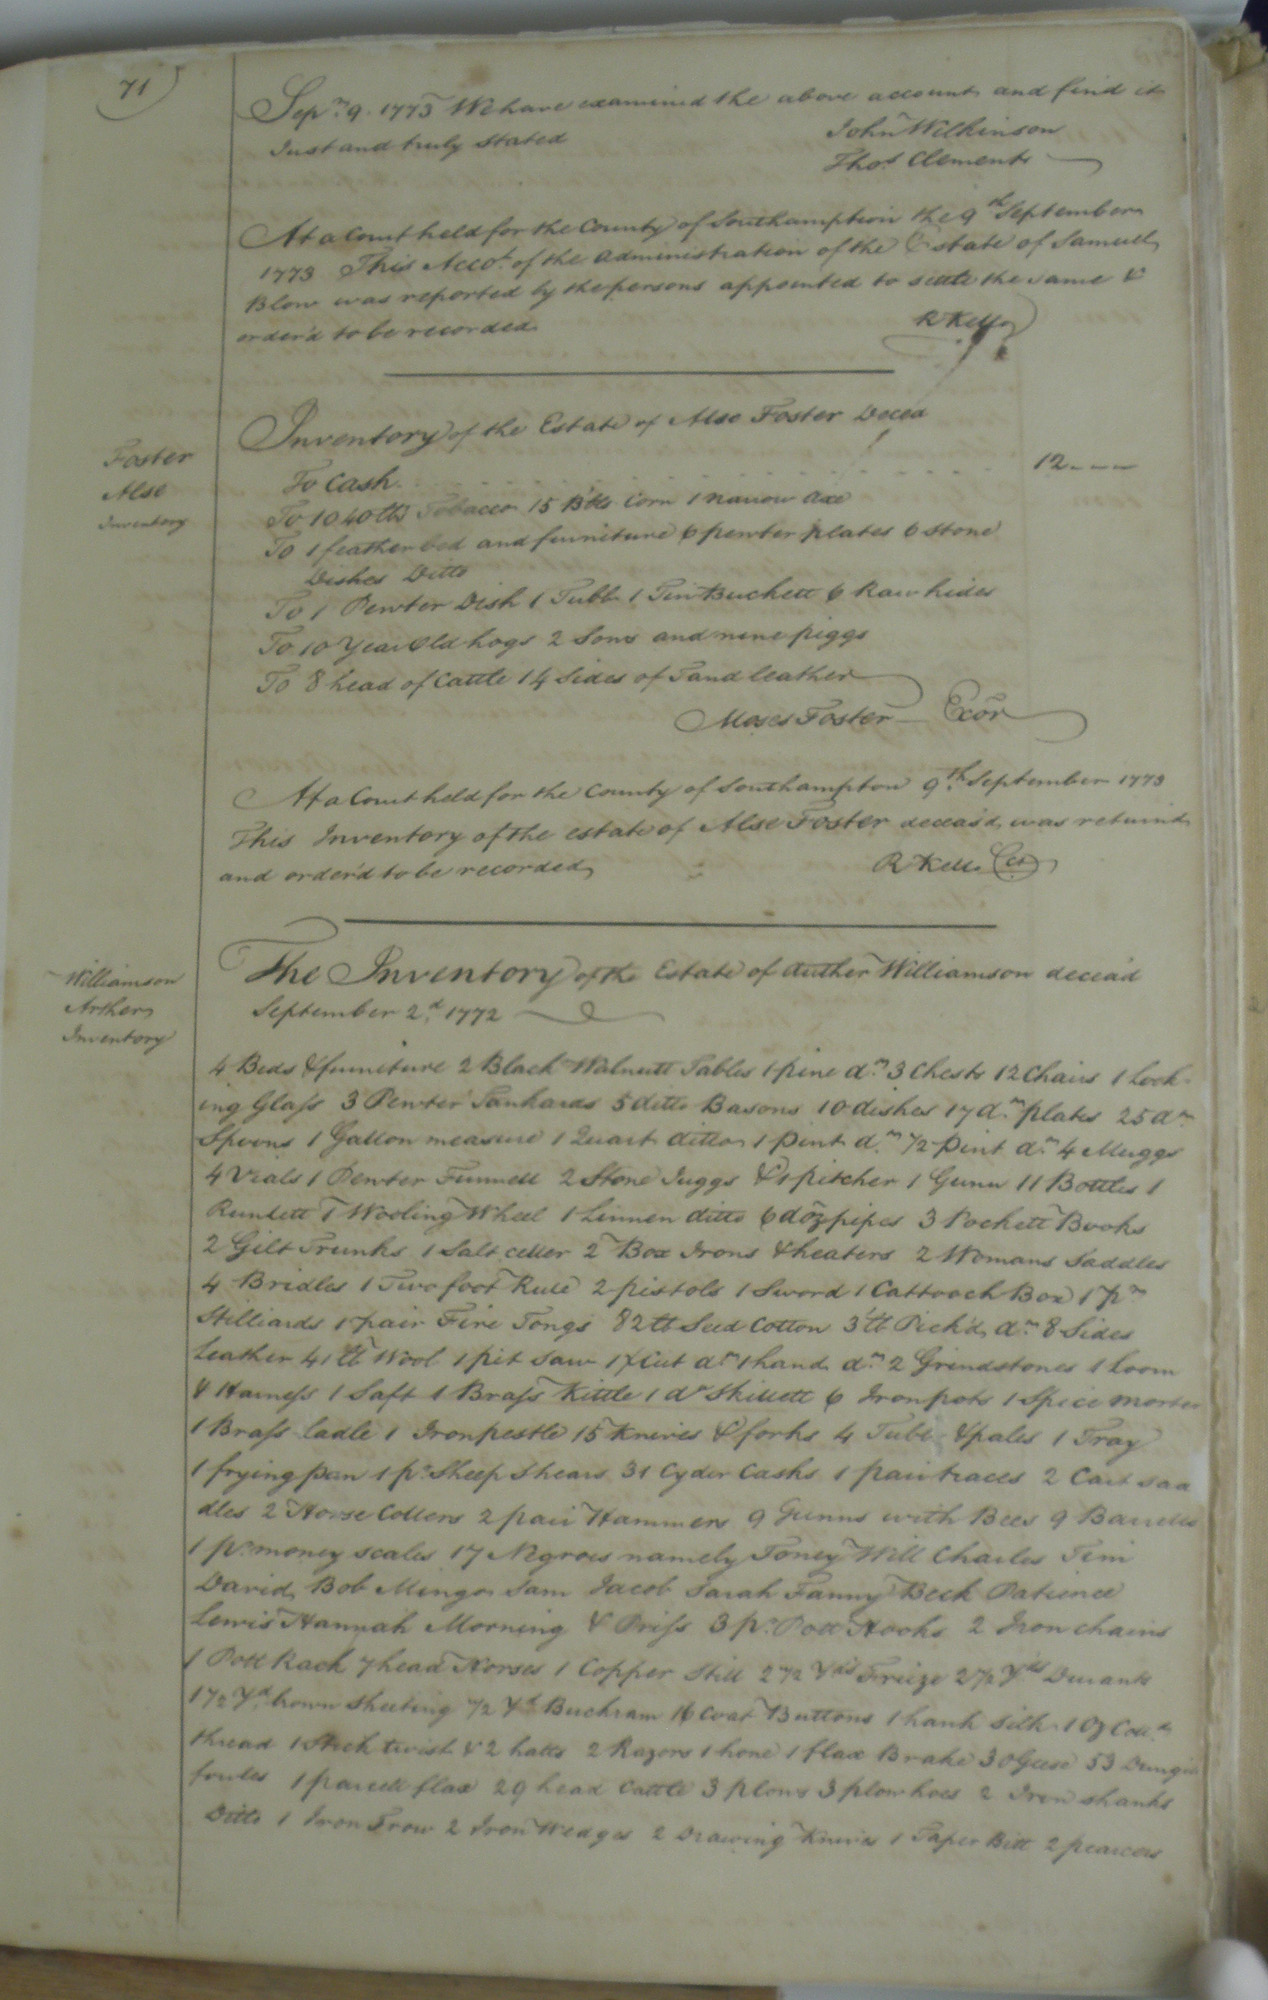 71
Sepr. 9. 1773 We have examined the above account and find it
Just and truly stated
John Wilkinson
Thos. Clements
At a Court held for the County of Southamption the 9th September
1773 This Acco.t of the administration of the Estate of Samuel
Blow was reported by the persons appointed to settle the same &
order'd to be recorded
R Kello
Foster
Alse
Inventory
Inventory of the Estate of Alse Foster Deced
To Cash 12
To 1040 lb Tobacco 15 Bbls Corn 1 narrow axe
To 1 feather bed and furniture 6 pewter plates 6 stone
Dishes Ditto
To 1 Pewter Dish 1 Tubb 1 Tin Buckett 6 Raw hides
To 10 Year Old hogs 2 Sows and nine piggs
To 8 head of Cattle 14 Sides of Tand leather
Moses Foster Exor
At a Court held for the County of Southampton 9th September 1773
This Inventory of the estate of Alse Foster deceas'd was return'd
and order'd to be recorded
R Kello Cct
Williamson
Arther
Inventory
The Inventory of the Estate of Auther Williamson decea'd
September 2d 1772
4 Beds & furniture 2 Black Walnutt Tables 1 pine do 3 Chests 12 Chairs 1 Look-
ing Glass 3 Pewter Tankards 5 ditto Basons 10 dishes 17 do plates 25 do
Spoons 1 Gallon measure 1 Quart ditto 1 pint do 1/2 pint do 4 Muggs
4 Vials 1 Pewter Funnell 2 Stone Juggs & 1 pitcher 1 Gunn 11 Bottles 1
Rundlett 1 Wooling Wheel 1 Linnen ditto 6 doz pipes 3 Pockett Books
2 Gilt Trunks 1 Salt celler 2 Box Irons & heaters 2 Womans Saddles
4 Bridles 1 Two foot Rule 2 pistols 1 Sword 1 Cattooch Box 1 pr
Stilliards 1 pair Fire Tongs 82 lb Seed Cotton 3 lb Pick'd do 8 Sides
Leather 41 lb Wool 1 pit saw 1 X Cut do 1 hand do 2 Grindstones 1 loom
& Harness 1 Saft 1 Brass Kittle 1 do Skillett 6 Iron pots 1 Spice morter
1 Brass ladle 1 Iron pestle 15 Knives & forks 4 Tubs & pales 1 Tray
1 frying pan 1 pr Sheep Shears 31 Cyder Casks 1 pair traces 2 Cart sad
dles 2 Horse Collers 2 pair Hammers 9 Gumms with Bees 9 Barrells
1 pr money scales 17 Negroes namely Toney Will Charles Tim
David Bob Mingo Sam Jacob Sarah Fanny Beck Patience
Lewis Hannah Morning & Priss 3 pr Pott Hooks 2 Iron chains
1 Pott Rack 7 head Horses 1 Copper Still 2 1/2 Yds Freize 2 1/2 Yds Durants
1 1/2 Yd brown Sheeting 1/2 Yd Buckram 16 Coat Buttons 1 hank silk 1 Oz Cold
thread 1 Stick twist & 2 hatts 2 Razors 1 hone 1 flax Brake 30 Geese 53 Dungil
fowles 1 parcell flax 29 head Cattle 3 plows 3 plow hoes 2 Iron shanks
Ditto 1 Iron Frow 2 Iron Wedges 2 Drawing Knives 1 Taper Bitt 2 pearcers